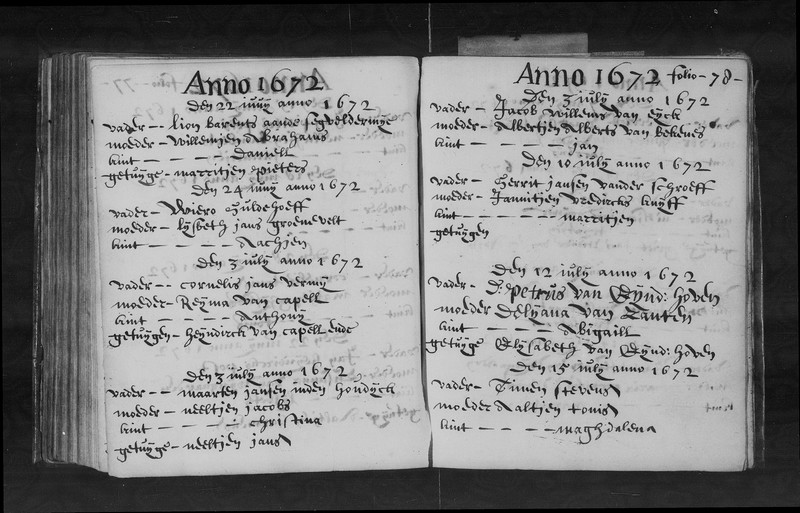 Anno 1672
Den 22 Juny anno 1672
vader - - Lion barents aande
moeder - - Willemjen Abrahams
kint - - - - Daniell
getuyge - marritjen pieters
Den 24 Juny anno 1672
vader - Guldehoeff
moeder - Lysbeth jans groenevelt
kint - - - - Aachjen
Den 3 july anno 1672
vader - - cornelis jans vermy
moeder - Reyma van capell
kint - - - - Anthony
getuygen - heyndirck van capell ende
Den 3 july anno 1672
vader - - maarten jansen inden houdyck
moeder - neeltjen jacobs
kint - - - - christina
getuyge - neeltjen jans
Anno 1672 folio - 78 -
Den 3 july anno 1672
vader - Jacob Willems van Eyck
moeder - Albertjen Alberts van bekenes
kint - - - - jan
Den 10 july anno 1672
vader - Gerrit jansen vander schroeff
moeder - Jannitjen vredircks kuyff
kint - - - - - marritjen
getuygen
Den 12 july anno 1672
vader - D: Petrus van Eynd: hoven
moeder Delyana van Santen
kint - - - - - Abigaill
getuyge Elysabeth van Eynd: hoven
Den 15 july anno 1672
vader - Timen stevens
moeder Aaltjen tonis
kint - - - - - maghdalena